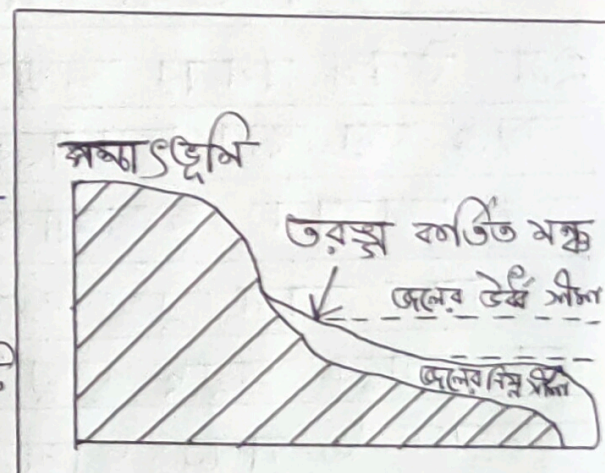 পশ্চাৎভূমি
তরঙ্গ কর্তিত মঞ্চ
জলের উর্ধ্ব সীমা
জলের নিম্ন সীমা